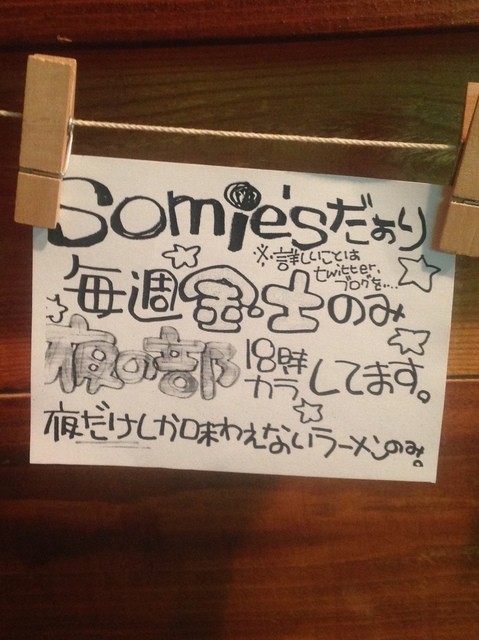 Somie'sだぁり
※詳しいことは
twitter,
ブログを...
毎週金・土のみ
夜の部 18時カラしてます。
夜だけしか味わえないラーメンのみ。